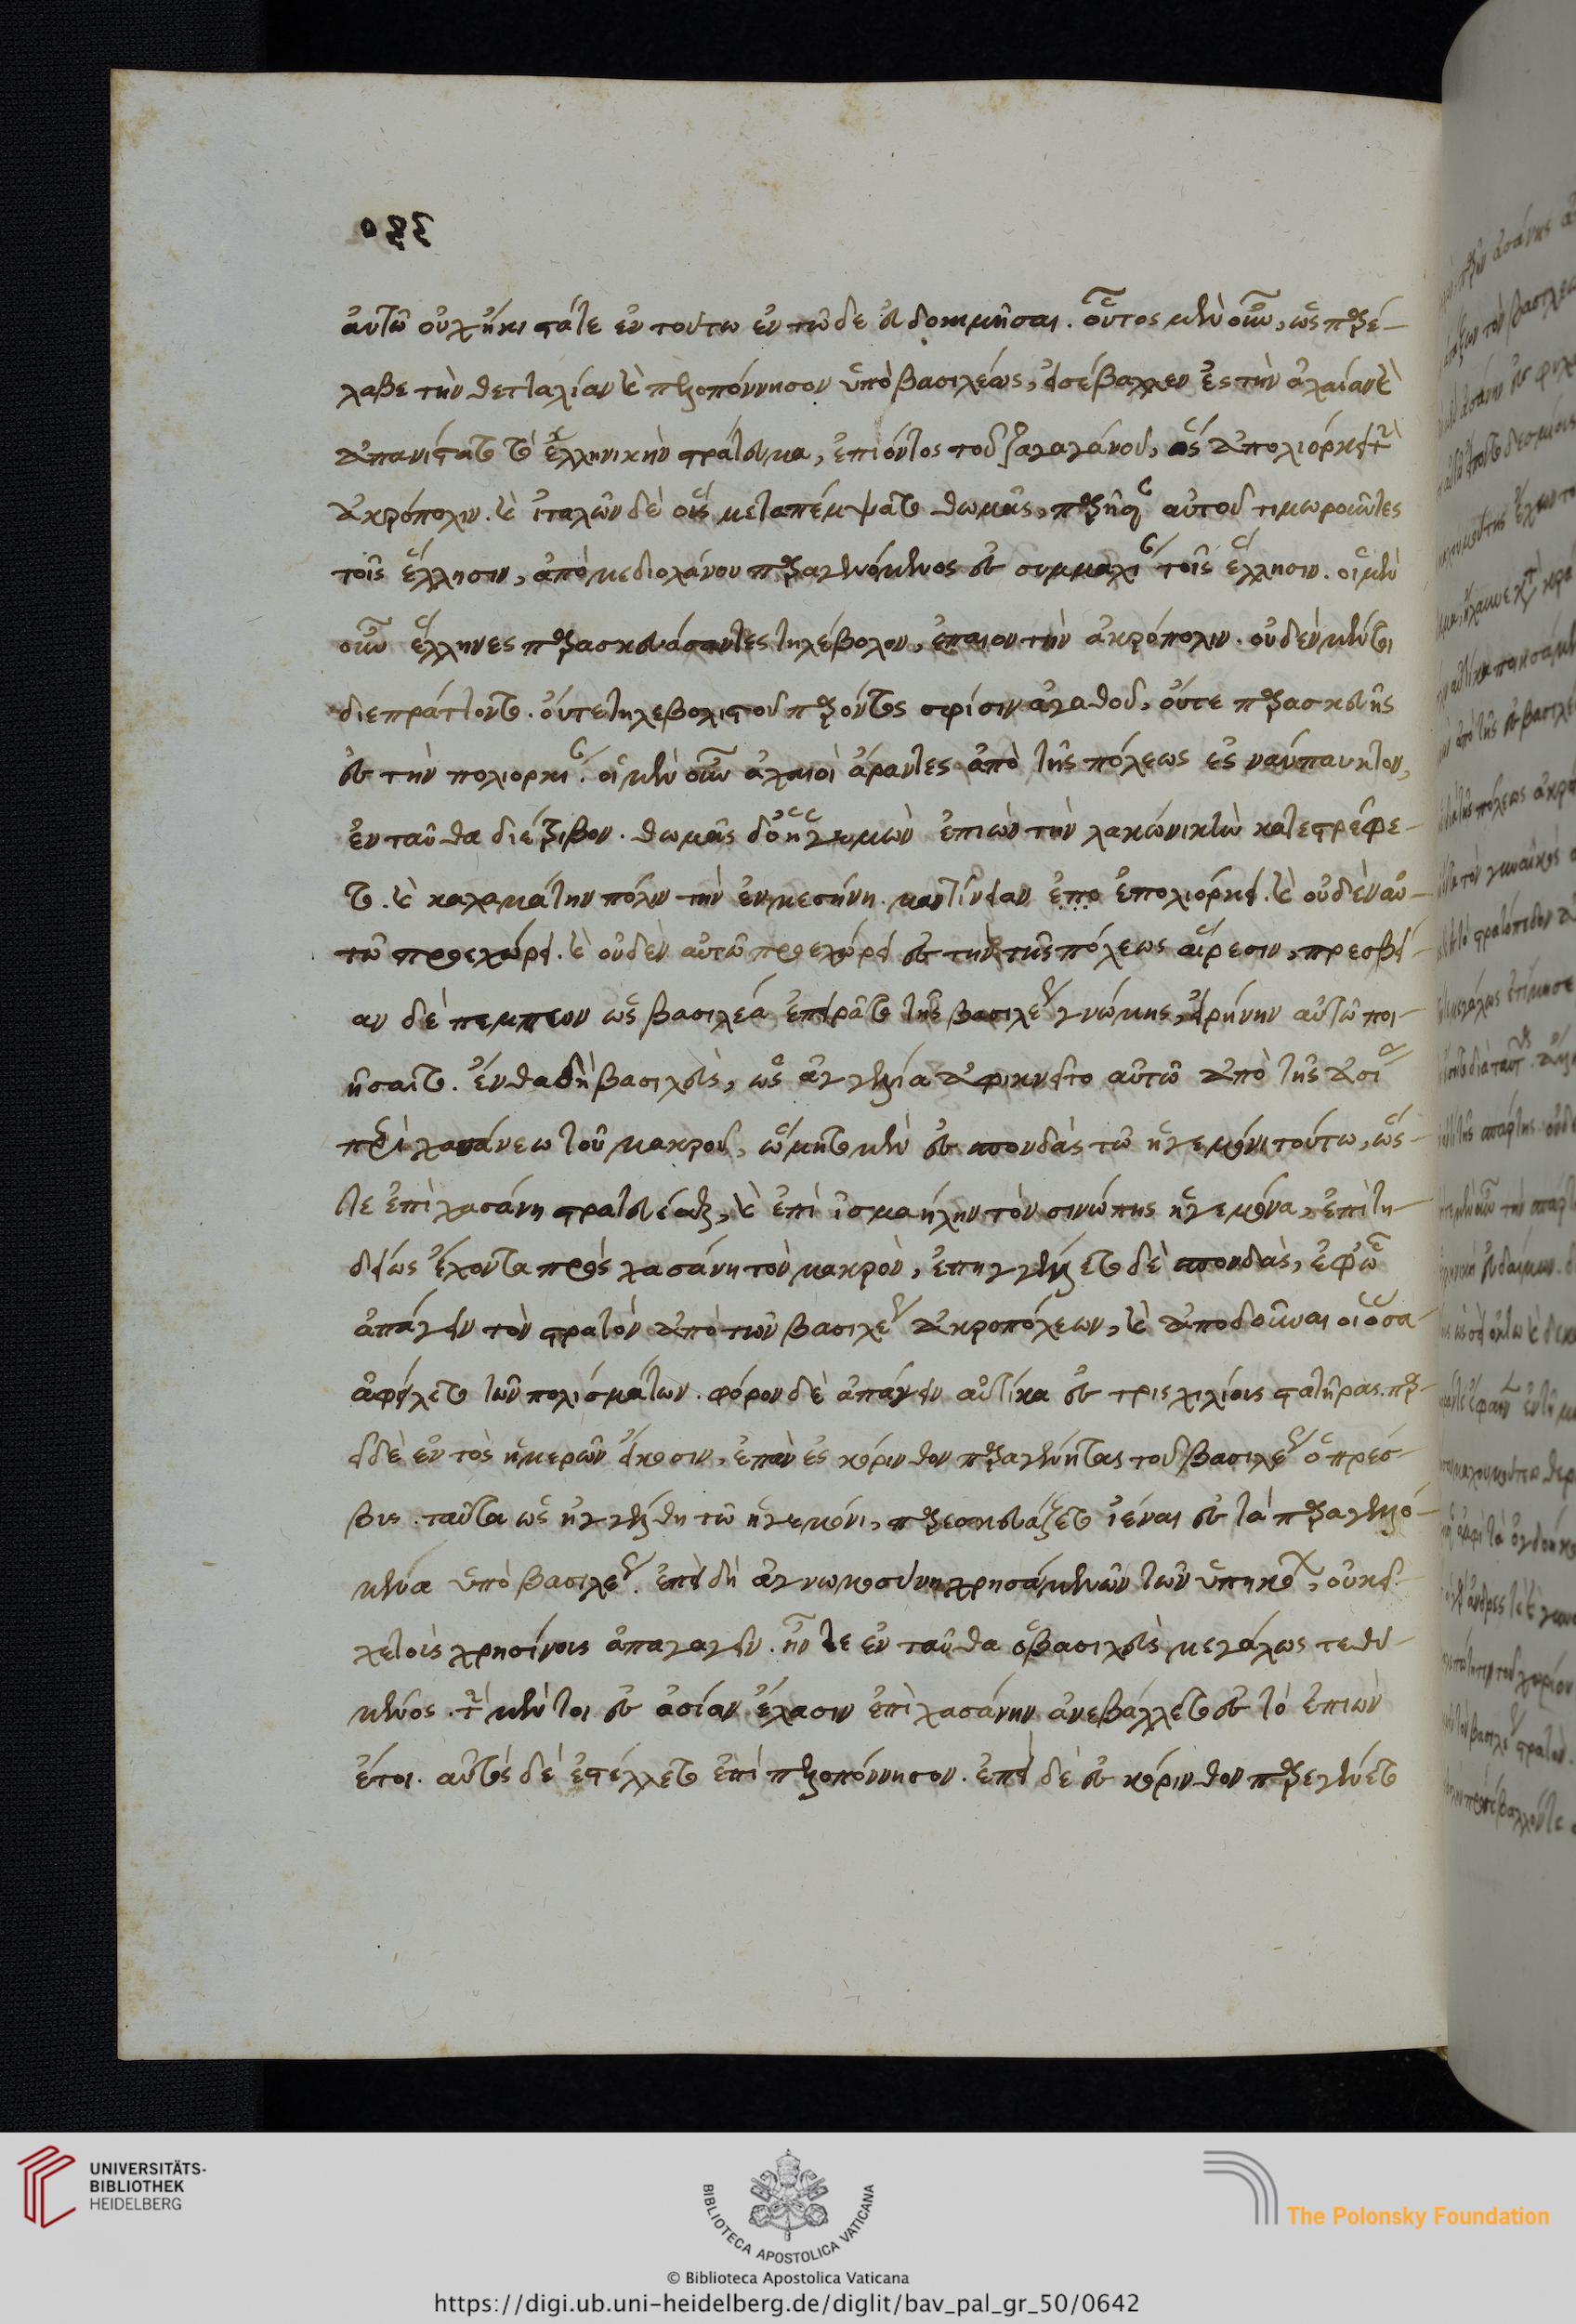 αὐτῶ οὐχ ἥκιστά τε ἐν τούτω ἐν τῶδε εὐδοκιμῆσαι. οὗτος μὲν οὖν, ὡς παρέ-
λαβε τὴν θετταλίαν καὶ πελοπόννησον ὑπὸ βασιλέως, εἰσέβαλλεν ἐς τὴν ἀχαίαν καὶ
ἀπανίστατο τὸ ἑλληνικὸν στράτευμα, ἐπιόντος τοῦ ζαγαγάνου,
ἀκρόπολιν. καὶ ἰταλῶν δὲ οὓς μεταπέμψατο θωμᾶς, παρῆσαν αὐτοῦ τιμωροῦντες
τοῖς ἕλλησιν, ἀπὸ μεδιολάνου παραγενόμενος ἐς συμμαχίαν τοῖς ἕλλησιν. οἱ μὲν
οὖν ἕλληνες παρασκευάσαντες τηλέβολον, ἔπαιον τὴν ἀκρόπολιν. οὐδὲν μέντοι
διεπράττοντο. οὔτε τηλεβολιστοῦ παρόντος σφίσιν ἀγαθοῦ, οὔτε παρασκευῆς
ἐς τὴν πολιορκίαν. οἱ μὲν οὖν ἀχαιοὶ ἄραντες ἀπὸ τῆς πόλεως ἐς ναύπακτον,
ἐνταῦθα διέτριβον. θωμᾶς δὲ ὁ ἡγεμὼν ἐπιὼν τὴν λακωνικὴν κατεστρέφε-
το. καὶ καλαμάτην πόλιν τὴν ἐν μεσήνη. μαντίνειαν ἐπο ἐπολιόρκει. καὶ οὐδὲν αὐ-
τῶ προεχώρει. καὶ οὐδὲν αὐτῶ προεχώρει ἐς τὴν τῆς πόλεως αἵρεσιν, πρεσβεί-
αν δὲ πέμπων ὡς βασιλέα ἐπειρᾶτο τῆς βασιλέως γνώμης, εἰρήνην αὐτῶ ποι-
ήσαιτο. ἔνθα δὴ βασιλεὺς, ὡς ἀγγελία ἀφικνεῖτο αὐτῶ ἀπὸ τῆς ἀσίας
περὶ χασάνεω τοῦ μακροῦ, ὥρμητο μὲν ἐς σπονδὰς τῶ ἡγεμόνι τούτω, ὥσ-
τε ἐπὶ χασάνη στρατεύεσθαι, καὶ ἐπὶ ἰσμαήλην τὸν σινώπης ἡγεμόνα, ἐπιτη-
δείως ἔχοντα πρὸς χασάνη τὸν μακρὸν, ἐπηγγέλλετο δὲ σπονδὰς, ἐφ' ὧ
ἀπάγειν τὸν στρατὸν ἀπὸ τῶν βασιλέως ἀκροπόλεων, καὶ ἀποδοῦναι οἱ ὅσα
ἀφείλετο τῶν πολισμάτων. φόρον δὲ ἀπάγειν αὐτίκα ἐς τρισχιλίους στατῆρας. παρ-
εῖ δὲ ἐντὸς ἡμερῶν εἴκοσιν, ἐπὰν ἐς κόρινθον παραγένηται τοῦ βασιλέως ὁ πρέσ-
βις. ταῦτα ὡς ἠγγέλθη τῶ ἡγεμόνι, παρεσκευάζετο ἰέναι ἐς τὰ παραγγελλό-
μενα ὑπὸ βασιλέως. ἐπειδὴ ἀγνωμοσύνη χρησάμενων τῶν ὑπηκόων, οὐκ εἶ-
χε τοὺς χρησίνους ἀπαγαγεῖν. ἦν τε ἐνταῦθα ὁ βασιλεὺς μεγάλως τεθυ-
μένος. τὴν μέντοι ἐς ἀσίαν ἔλασιν ἐπὶ χασάνην ἀνεβάλλετο ἐς τὸ ἐπιὼν
ἔτος. αὐτὸς δὲ ἐστέλλετο ἐπὶ πελοπόννησον. ἐπεὶ δὲ ἐς κόρινθον παρεγένετο
UNIVERSITÄTS-
BIBLIOTHEK
HEIDELBERG
BIBLIOTECA APOSTOLICA VATICANA
The Polonsky Foundation
© Biblioteca Apostolica Vaticana
https://digi.ub.uni-heidelberg.de/diglit/bav_pal_gr_50/0642